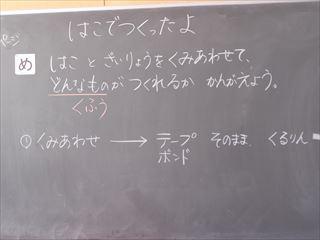 はこでつくったよ
め はこ と ざいりょうをくみあわせて、
どんなものが つくれるか かんがえよう。
くふう
① くみあわせ → テープ そのまま、 くるりん
ボンド